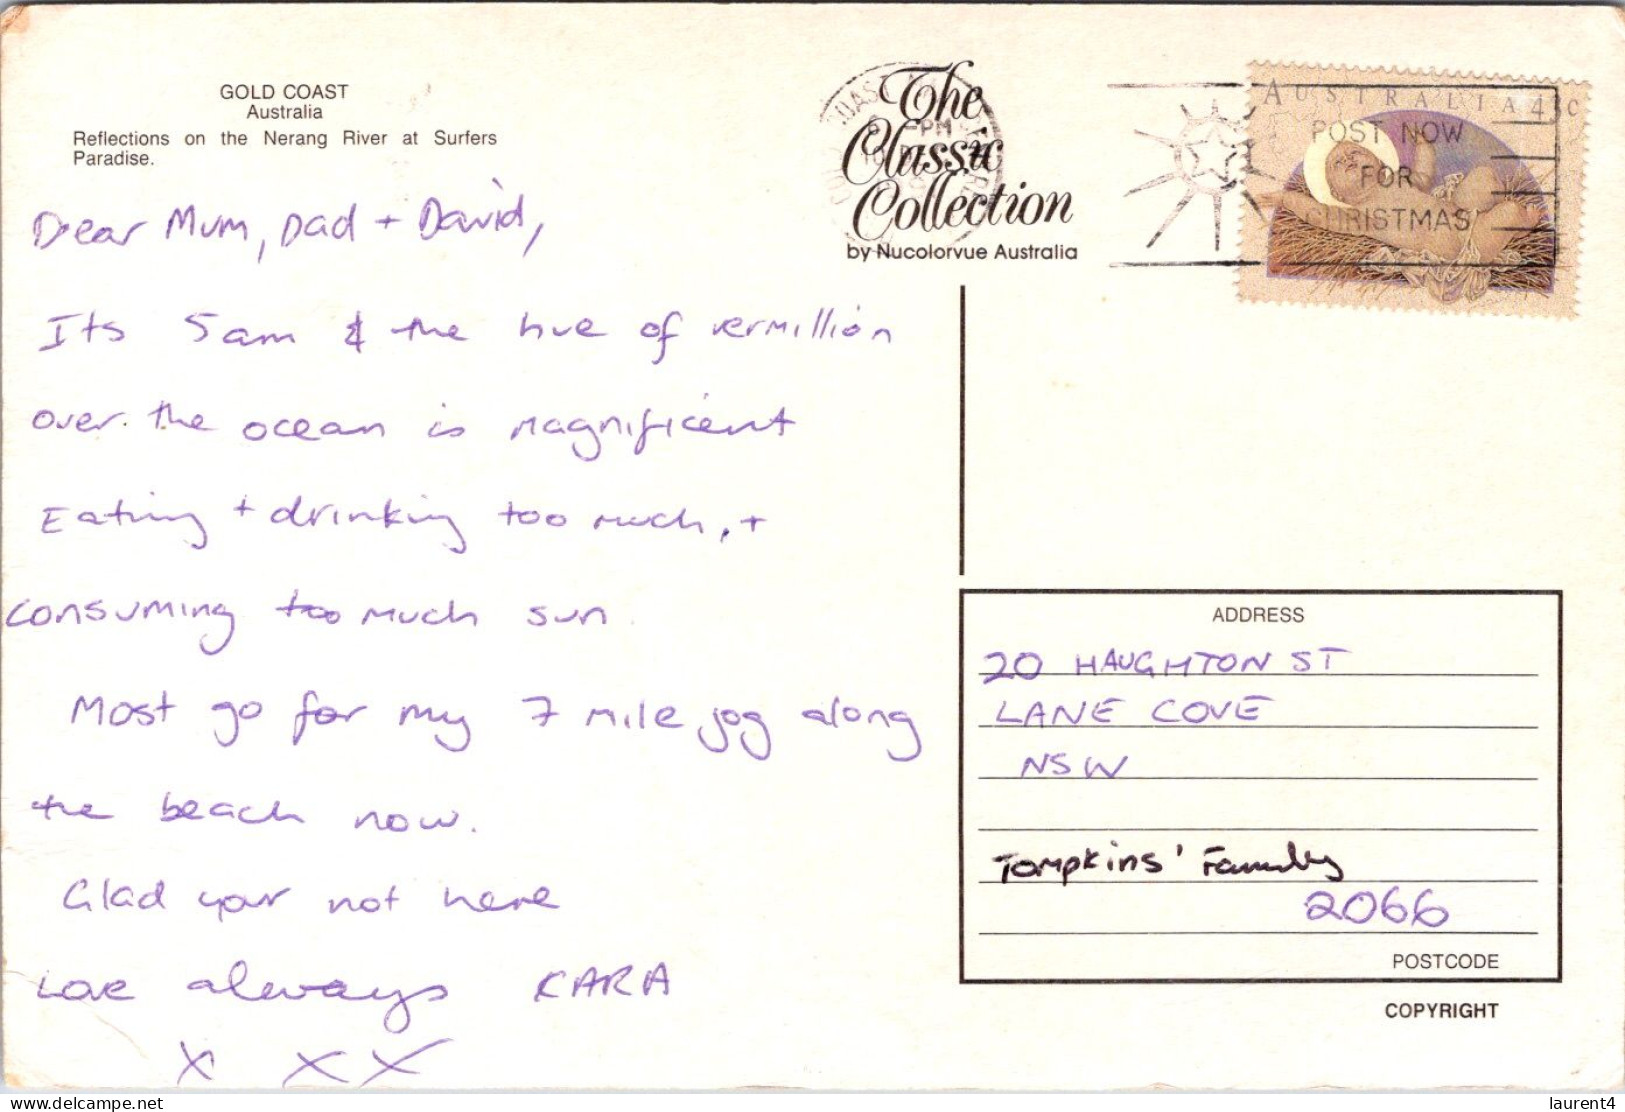 GOLD COAST
Australia
Reflections on the Nerang River at Surfers
Paradise.
Dear Mum, Dad + David,
Its 5am & the hue of vermillion
over the ocean is magnificent
Eating + drinking too much, +
consuming too much sun.
Most go for my 7 mile jog along
the beach now.
Glad your not here
Love always KARA
X X X
The
Classic
Collection
by Nucolorvue Australia
AUSTRALIA 43c
POST NOW
FOR
CHRISTMAS
ADDRESS
20 HAUGHTON ST
LANE COVE
NSW
Tompkins' Family
2066
POSTCODE
COPYRIGHT
laurent4